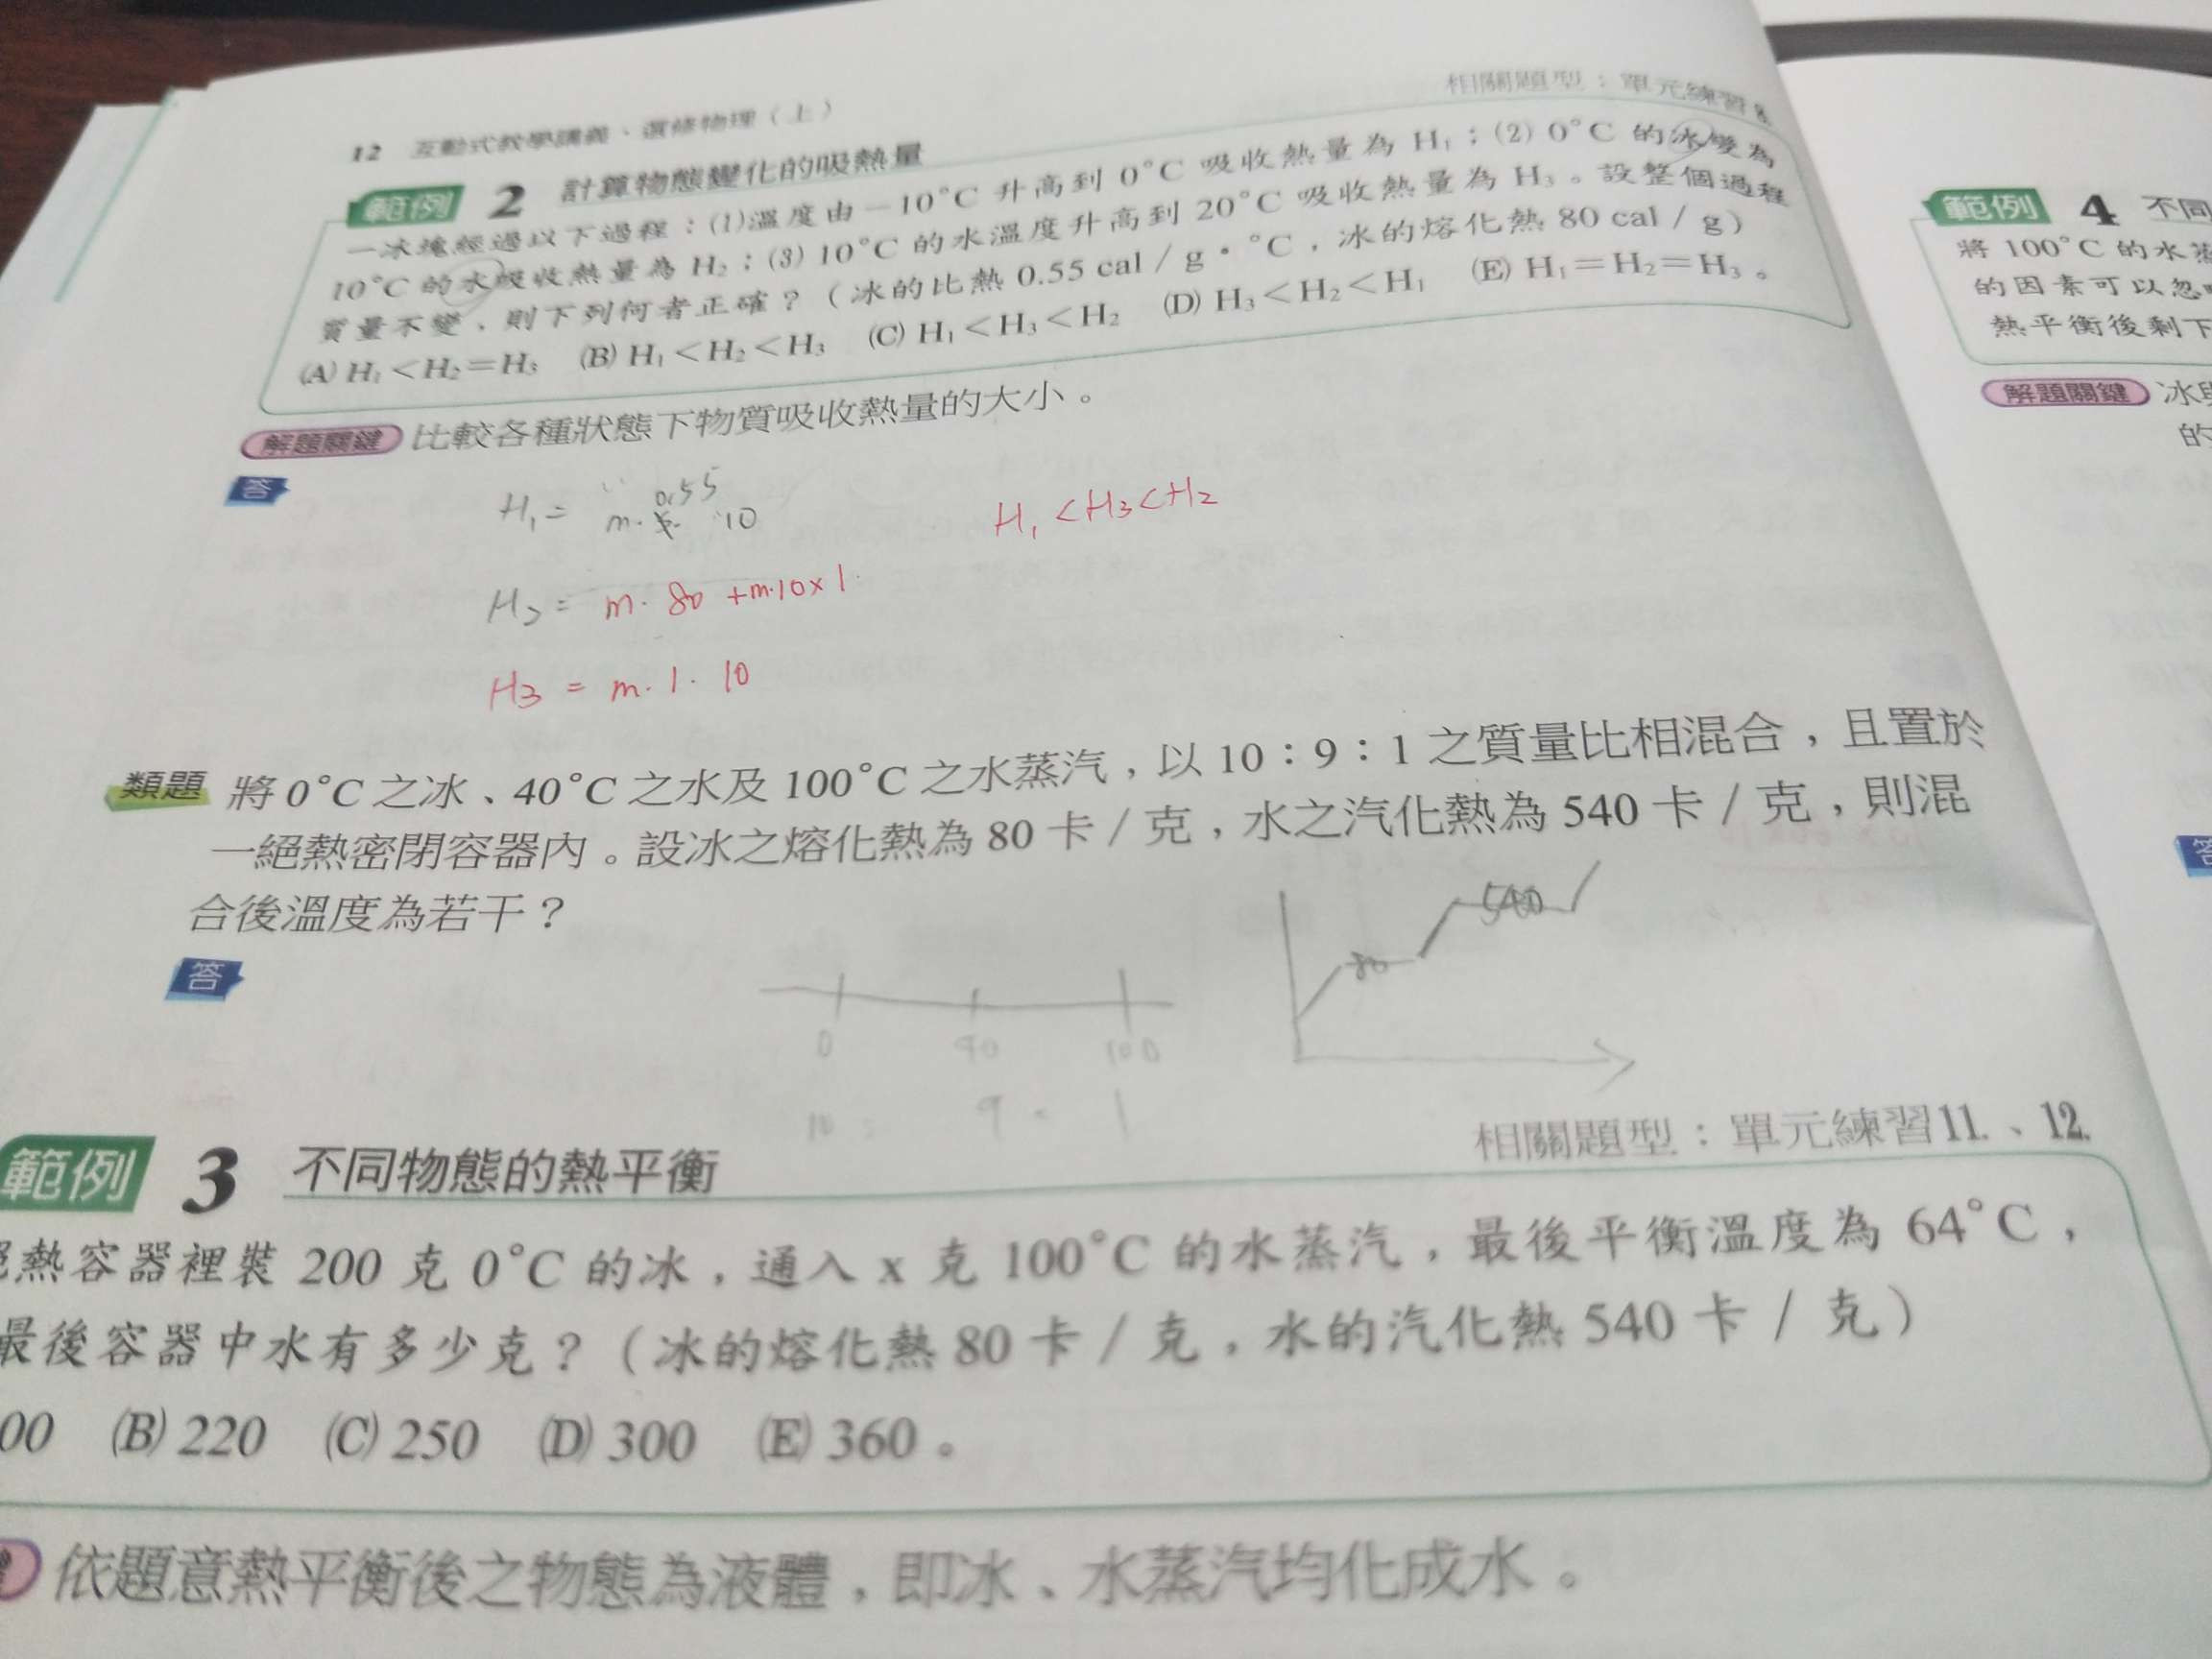 相關題型：單元練習8.
12 互動式教學講義、選修物理（上）
範例 2 計算物態變化的吸熱量
一冰塊經過以下過程：(1)溫度由－10°C 升高到 0°C 吸收熱量為 H₁；(2) 0°C 的冰變為
10°C 的水吸收熱量為 H₂；(3) 10°C 的水溫度升高到 20°C 吸收熱量為 H₃。設整個過程
質量不變，則下列何者正確？（冰的比熱 0.55 cal / g·°C，冰的熔化熱 80 cal / g）
(A) H₁＜H₂＝H₃ (B) H₁＜H₂＜H₃ (C) H₁＜H₃＜H₂ (D) H₃＜H₂＜H₁ (E) H₁＝H₂＝H₃。
解題關鍵 比較各種狀態下物質吸收熱量的大小。
答
0.55
H₁ = m. 10
H₁ < H₃ < H₂
H₂ = m. 80 + m.10×1.
H₃ = m. 1. 10
類題 將 0°C 之冰、40°C 之水及 100°C 之水蒸汽，以 10：9：1 之質量比相混合，且置於
一絕熱密閉容器內。設冰之熔化熱為 80 卡 / 克，水之汽化熱為 540 卡 / 克，則混
合後溫度為若干？
答
540
80
0 40 100
10 : 9 : 1
相關題型：單元練習11.、12.
範例 3 不同物態的熱平衡
熱容器裡裝 200 克 0°C 的冰，通入 x 克 100°C 的水蒸汽，最後平衡溫度為 64°C，
最後容器中水有多少克？（冰的熔化熱 80 卡 / 克，水的汽化熱 540 卡 / 克）
00 (B) 220 (C) 250 (D) 300 (E) 360。
依題意熱平衡後之物態為液體，即冰、水蒸汽均化成水。
範例 4 不同
將 100°C 的水蒸
的因素可以忽
熱平衡後剩下
解題關鍵 冰與
的
答